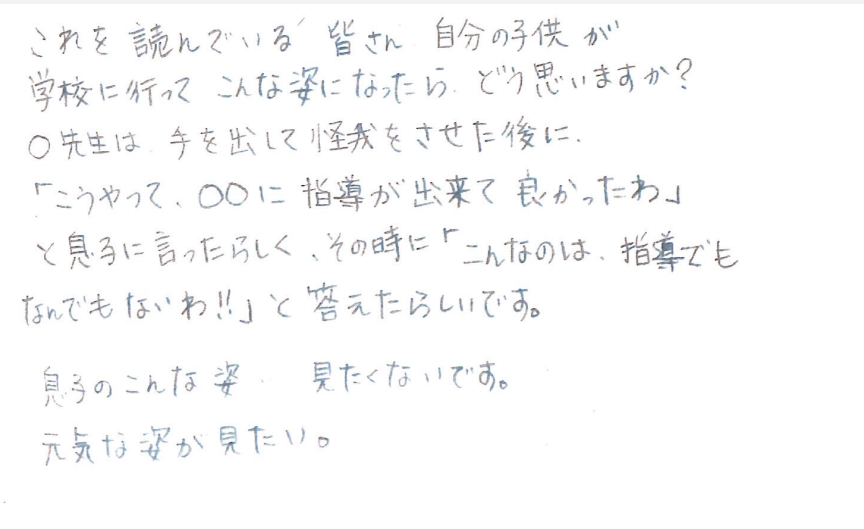 これを読んでいる 皆さん 自分の子供が
学校に行って こんな姿になったら、どう思いますか?
○先生は 手を出して怪我をさせた後に、
「こうやって、○○に指導が出来て良かったわ」
と息子に言ったらしく、その時に「こんなのは、指導でも
なんでもないわ!!」と答えたらしいです。
息子のこんな姿 見たくないです。
元気な姿が見たい。